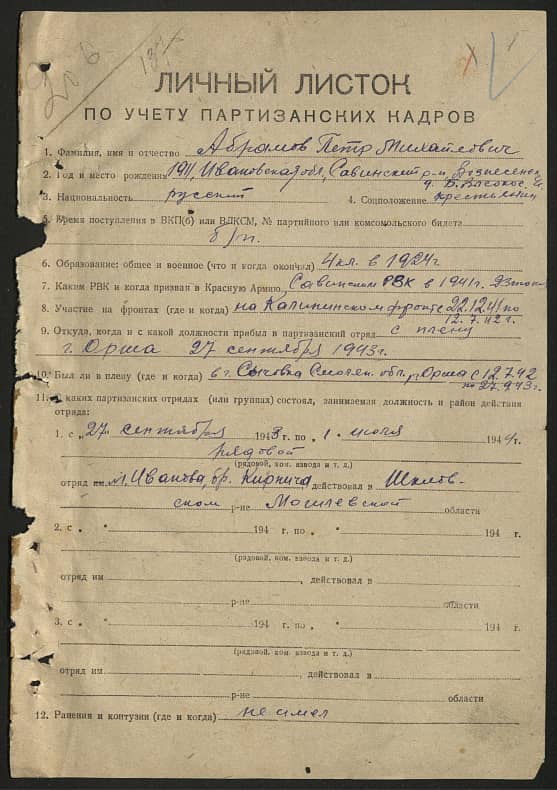 206
187
ЛИЧНЫЙ ЛИСТОК
ПО УЧЕТУ ПАРТИЗАНСКИХ КАДРОВ
1. Фамилия, имя и отчество Абрамов Петр Михайлович
2. Год и место рождения 1911, Ивановская обл, Савинский р-н,
3. Национальность русский 4. Соцположение крестьянин
5. Время поступления в ВКП(б) или ВЛКСМ, № партийного или комсомольского билета
б/п.
6. Образование: общее и военное (что и когда окончил) 4 кл. в 1924 г.
7. Каким РВК и когда призван в Красную Армию Савинским РВК в 1941 г. 23 июня
8. Участие на фронтах (где и когда) на Калининском фронте 22.12.41 по
12.7.42 г.
9. Откуда, когда и с какой должности прибыл в партизанский отряд с плену
г. Орша 27 сентября 1943 г.
10. Был ли в плену (где и когда) в г. Сычовка Смолен. обл. г. Орша с 12.7.42
по 27.9.43 г.
11. В каких партизанских отрядах (или группах) состоял, занимаемая должность и район действия
отряда:
1. с „27" сентября 1943 г. по „1" июля 1944 г.
рядовой
(рядовой, ком. взвода и т. д.)
отряд им. Иванова бр. Кирпича действовал в Шклов-
ском р-не Могилевской области
2. с „ " 194 г. по „ " 194 г.
(рядовой, ком. взвода и т. д.)
отряд им , действовал в
р-не области
3. с „ " 194 г. по „ " 194 г.
(рядовой, ком. взвода и т. д.)
отряд им , действовал в
р-не области
12. Ранения и контузии (где и когда) не имел